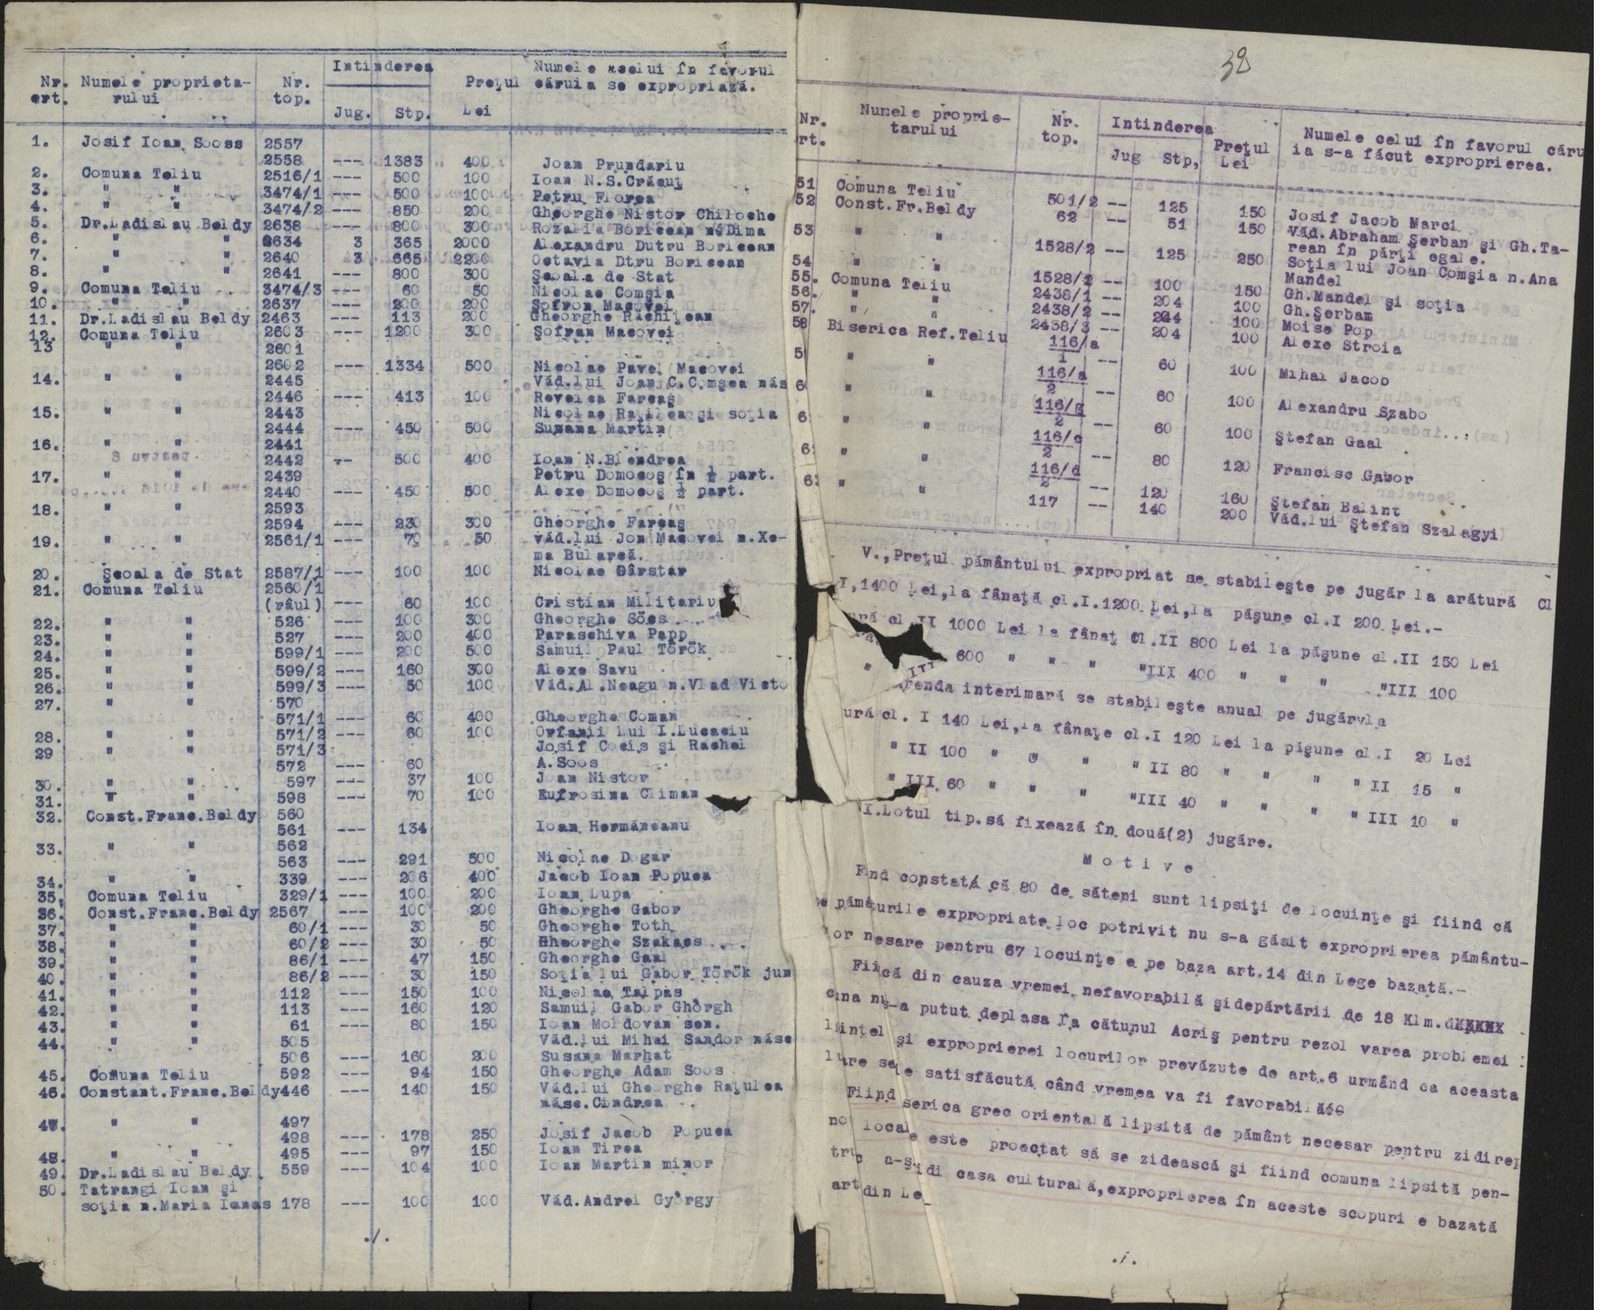 Nr. crt. Numele proprietarului Nr. top. Intinderea Jug. Stp. Preţul Lei Numele acelui în favorul căruia se expropriază.
1. Josif Ioan Sooss 2557
2558 --- 1383 400 Joan Prundariu
2. Comuna Teliu 2516/1 --- 500 100 Ioan N.S.Crăcuţ
3. " " 3474/1 --- 500 100 Petru Florea
4. " " 3474/2 --- 850 200 Gheorghe Nistor Chiloche
5. Dr.Ladislau Beldy 2638 --- 800 300 Rozalia Boricean Dima
6. " " 2634 3 365 2000 Alexandru Dutru Boricean
7. " " 2640 3 665 2200 Octavia Dtru Boricean
8. " " 2641 --- 800 300 Şcoala de Stat
9. Comuna Teliu 3474/3 --- 60 50 Nicolae Comşia
10. " " 2637 --- 200 200 Şofron Macovei
11. Dr.Ladislau Beldy 2463 --- 113 200 Gheorghe Rachiţean
12. Comuna Teliu 2603 --- 1200 300 Şofran Macovei
13 " " 2601
2602 --- 1334 500 Nicolae Pavel Macovei
14. " " 2445 Văd.lui Joan C.Comşea năs
2446 --- 413 100 Revelca Farcaş
15. " " 2443 Nicolae Railea şi soţia
2444 --- 450 500 Susana Martin
16. " " 2441
2442 -- 500 400 Ioan N.Blendrea
17. " " 2439 Petru Domocoş în ½ part.
2440 --- 450 500 Alexe Domocoş ½ part.
18. " " 2593
2594 --- 230 300 Gheorghe Farcaş
19. " " 2561/1 --- 70 50 văd.lui Jon Macovei n.Xe-
ma Bularcă.
20. Şcoala de Stat 2587/1 --- 100 100 Nicolae Gârstar
21. Comuna Teliu 2560/1
(râul) --- 60 100 Cristian Militariu
22. " " 526 --- 100 300 Gheorghe Söos
23. " " 527 --- 200 400 Paraschiva Papp
24. " " 599/1 --- 200 500 Samuil Paul Török
25. " " 599/2 --- 160 300 Alexe Savu
26. " " 599/3 --- 50 100 Văd.Al.Neagu n.Vlad Victo
27. " " 570
571/1 --- 60 400 Gheorghe Coman
28. " " 571/2 --- 60 100 Orfanii lui I.Lucaciu
29 " " 571/3 Josif Cocis şi Rachel
572 --- 60 A.Soos
30. " " 597 --- 37 100 Joan Nistor
31. " " 598 --- 70 100 Eufrosina Climan
32. Const.Franc.Beldy 560
561 --- 134 Ioan Hermăneanu
33. " " 562
563 --- 291 500 Nicolae Dogar
34. " " 339 --- 206 400 Jacob Ioan Popuca
35. Comuna Teliu 329/1 --- 100 200 Ioan Lupa
36. Const.Franc.Beldy 2567 --- 100 200 Gheorghe Gabor
37. " " 60/1 --- 30 50 Gheorghe Toth
38. " " 60/2 --- 30 50 Gheorghe Szakacs
39. " " 86/1 --- 47 150 Gheorghe Gaal
40. " " 86/2 --- 30 150 Soţia lui Gabor Török jun
41. " " 112 --- 150 100 Nicolae Talpas
42. " " 113 --- 160 120 Samuil Gabor Ghörgh
43. " " 61 --- 80 150 Ioan Moldovan sen.
44. " " 505 Văd.lui Mihai Sandor născ
506 --- 160 200 Susana Marhat
45. Comuna Teliu 592 --- 94 150 Gheorghe Adam Soos
46. Constant.Franc.Beldy 446 --- 140 150 Văd.lui Gheorghe Raţulea
născ.Cindrea
47. " " 497
498 --- 178 250 Josif Jacob Popuca
48. " " 495 --- 97 150 Ioan Tirea
49. Dr.Ladislau Beldy 559 --- 104 100 Ioan Martin minor
50. Tatrangi Ioan şi
soţia n.Maria Ianas 178 --- 100 100 Văd.Andrei György
./.
32
Nr. rt. Numele proprietarului Nr. top. Intinderea Jug Stp, Preţul Lei Numele celui în favorul căru ia s-a făcut exproprierea.
51 Comuna Teliu 501/2 -- 125 150 Josif Jacob Marci
52 Const.Fr.Beldy 62 -- 51 150 Văd.Abraham Şerban şi Gh.Ta-
rean în părţi egale.
53 " " 1528/2 -- 125 250 Soţia lui Joan Comşia n.Ana
Mandel
54 " " 1528/2 -- 100 150 Gh.Mandel şi soţia
55. Comuna Teliu 2438/1 -- 204 100 Gh.Şerbam
56. " " 2438/2 -- 204 100 Moise Pop
57. " " 2438/3 -- 204 100 Alexe Stroia
58 Biserica Ref.Teliu 116/a
1 -- 60 100 Mihai Jacob
5 " " 116/a
2 -- 60 100 Alexandru Szabo
6 " " 116/g
2 -- 60 100 Ştefan Gaal
6 " " 116/c
2 -- 80 120 Francisc Gabor
6 " " 116/d
2 -- 120 160 Ştefan Balint
6 " " 117 -- 140 200 Văd.lui Ştefan Szalagyi
V.,Preţul pământului expropriat se stabileşte pe jugăr la arătură Cl
I,1400 Lei,la fânaţă cl.I.1200 Lei,la păşune cl.I 200 Lei.-
ură cl.II 1000 Lei la fânaţ Cl.II 800 Lei la păşune cl.II 150 Lei
" III 600 " " " "III 400 " " " "III 100
renda interimară se stabileşte anual pe jugărvla
ură cl. I 140 Lei,la fânaţe cl.I 120 Lei la păşune cl.I 20 Lei
" II 100 " " " " II 80 " " " " II 15 "
" III 60 " " " "III 40 " " " " III 10 "
I.Lotul tip.să fixează în două(2) jugăre.
M o t i v e
Fiind constată că 80 de săteni sunt lipsiţi de locuinţe şi fiind că
pe pământurile expropriate loc potrivit nu s-a găsit exproprierea pământu-
lor nesare pentru 67 locuinţe e pe baza art.14 din Lege bazată.-
Fiică din cauza vremei nefavorabilă şidepărtării de 18 Klm.dXXXXX
cina nu-a putut deplasa la cătunul Acriş pentru rezol varea problemei
şi exproprierei locurilor prevăzute de art.6 urmând ca aceasta
satisfăcută când vremea va fi favorabilă
Fiind serica grec orientală lipsită de pământ necesar pentru zidirea
no locale este proectat să se zidească şi fiind comuna lipsită pen-
tru a-şi zidi casa culturală,exproprierea în aceste scopuri e bazată
art din Le
./.